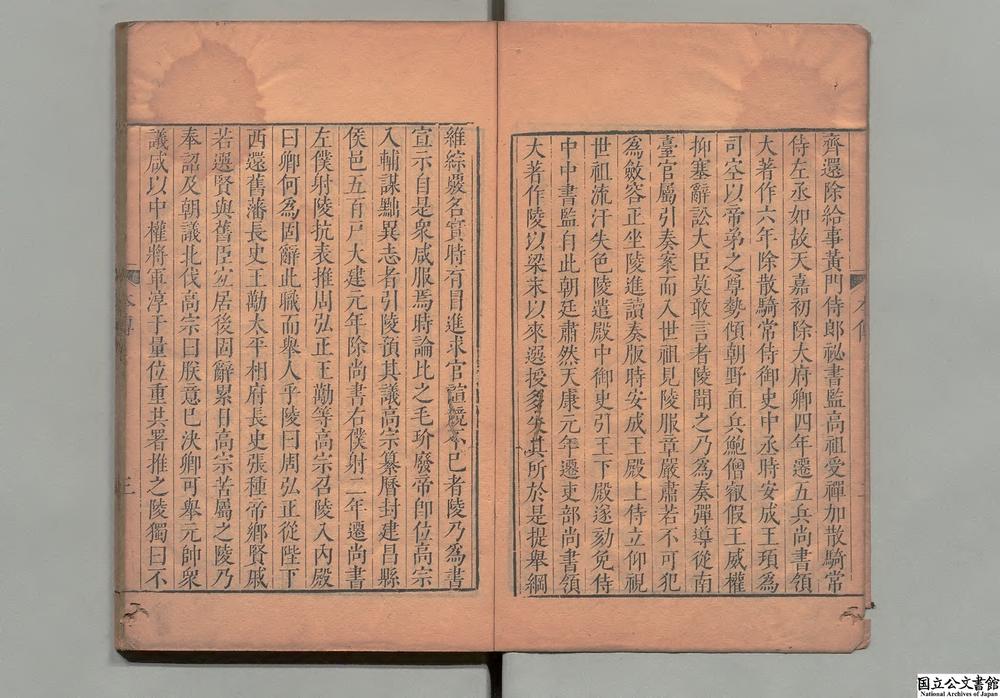 齊還除給事黃門侍郎祕書監高祖受禪加散騎常
侍左丞如故天嘉初除太府卿四年遷五兵尚書領
大著作六年除散騎常侍御史中丞時安成王頊為
司空以帝弟之尊勢傾朝野直兵鮑僧叡假王威權
抑塞辭訟大臣莫敢言者陵聞之乃為奏彈導從南
臺官屬引奏案而入世祖見陵服章嚴肅若不可犯
為斂容正坐陵進讀奏版時安成王殿上侍立仰視
世祖流汗失色陵遣殿中御史引王下殿遂劾免侍
中中書監自此朝廷肅然天康元年遷吏部尚書領
大著作陵以梁末以來選授多失其所於是提舉綱
維綜覈名實時有冒進求官諠競不已者陵乃為書
宣示自是眾咸服焉時論比之毛玠廢帝卽位高宗
入輔謀黜異志者引陵預其議高宗纂曆封建昌縣
侯邑五百戸大建元年除尚書右僕射二年遷尚書
左僕射陵抗表推周弘正王勱等高宗召陵入內殿
曰卿何為固辭此職而舉人乎陵曰周弘正從陛下
西還舊藩長史王勱太平相府長史張種帝鄉賢戚
若選賢與舊臣宐居後固辭累日高宗苦屬之陵乃
奉詔及朝議北伐高宗曰朕意已決卿可舉元帥眾
議咸以中權將軍淳于量位重共署推之陵獨曰不
本傳
三
国立公文書館
National Archives of Japan